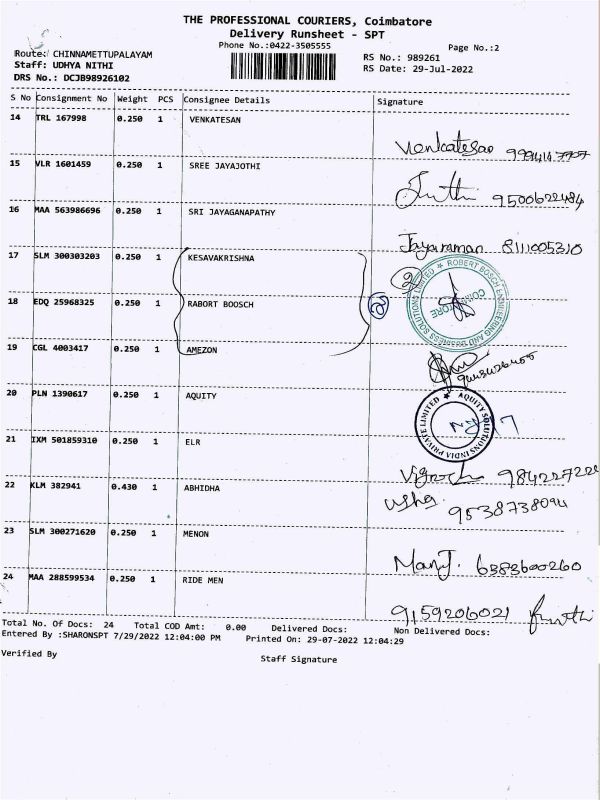 THE PROFESSIONAL COURIERS, Coimbatore
Delivery Runsheet - SPT
Phone No.:0422-3505555
Page No.:2
Route: CHINNAMETTUPALAYAM
Staff: UDHYA NITHI
DRS No.: DCJB98926102
RS No.: 989261
RS Date: 29-Jul-2022
S No Consignment No Weight PCS Consignee Details Signature
14 TRL 167998 0.250 1 VENKATESAN
Venkatesan
15 VLR 1601459 0.250 1 SREE JAYAJOTHI
9500622484
16 MAA 563986696 0.250 1 SRI JAYAGANAPATHY
Jayaramman 8111005310
17 SLM 300303203 0.250 1 KESAVAKRISHNA
18 EDQ 25968325 0.250 1 RABORT BOOSCH
2
ROBERT BOSCH ENGINEERING AND BUSINESS SOLUTIONS LIMITED
COIMBATORE
19 CGL 4003417 0.250 1 AMEZON
20 PLN 1390617 0.250 1 AQUITY
AQUITY SOLUTIONS INDIA PRIVATE LIMITED
21 IXM 501859310 0.250 1 ELR
984227222
22 KLM 382941 0.430 1 ABHIDHA
Usha 9538738094
23 SLM 300271620 0.250 1 MENON
Manj. 6383600260
24 MAA 288599534 0.250 1 RIDE MEN
9159206021
Total No. Of Docs: 24 Total COD Amt: 0.00 Delivered Docs: Non Delivered Docs:
Entered By :SHARONSPT 7/29/2022 12:04:00 PM Printed On: 29-07-2022 12:04:29
Verified By
Staff Signature